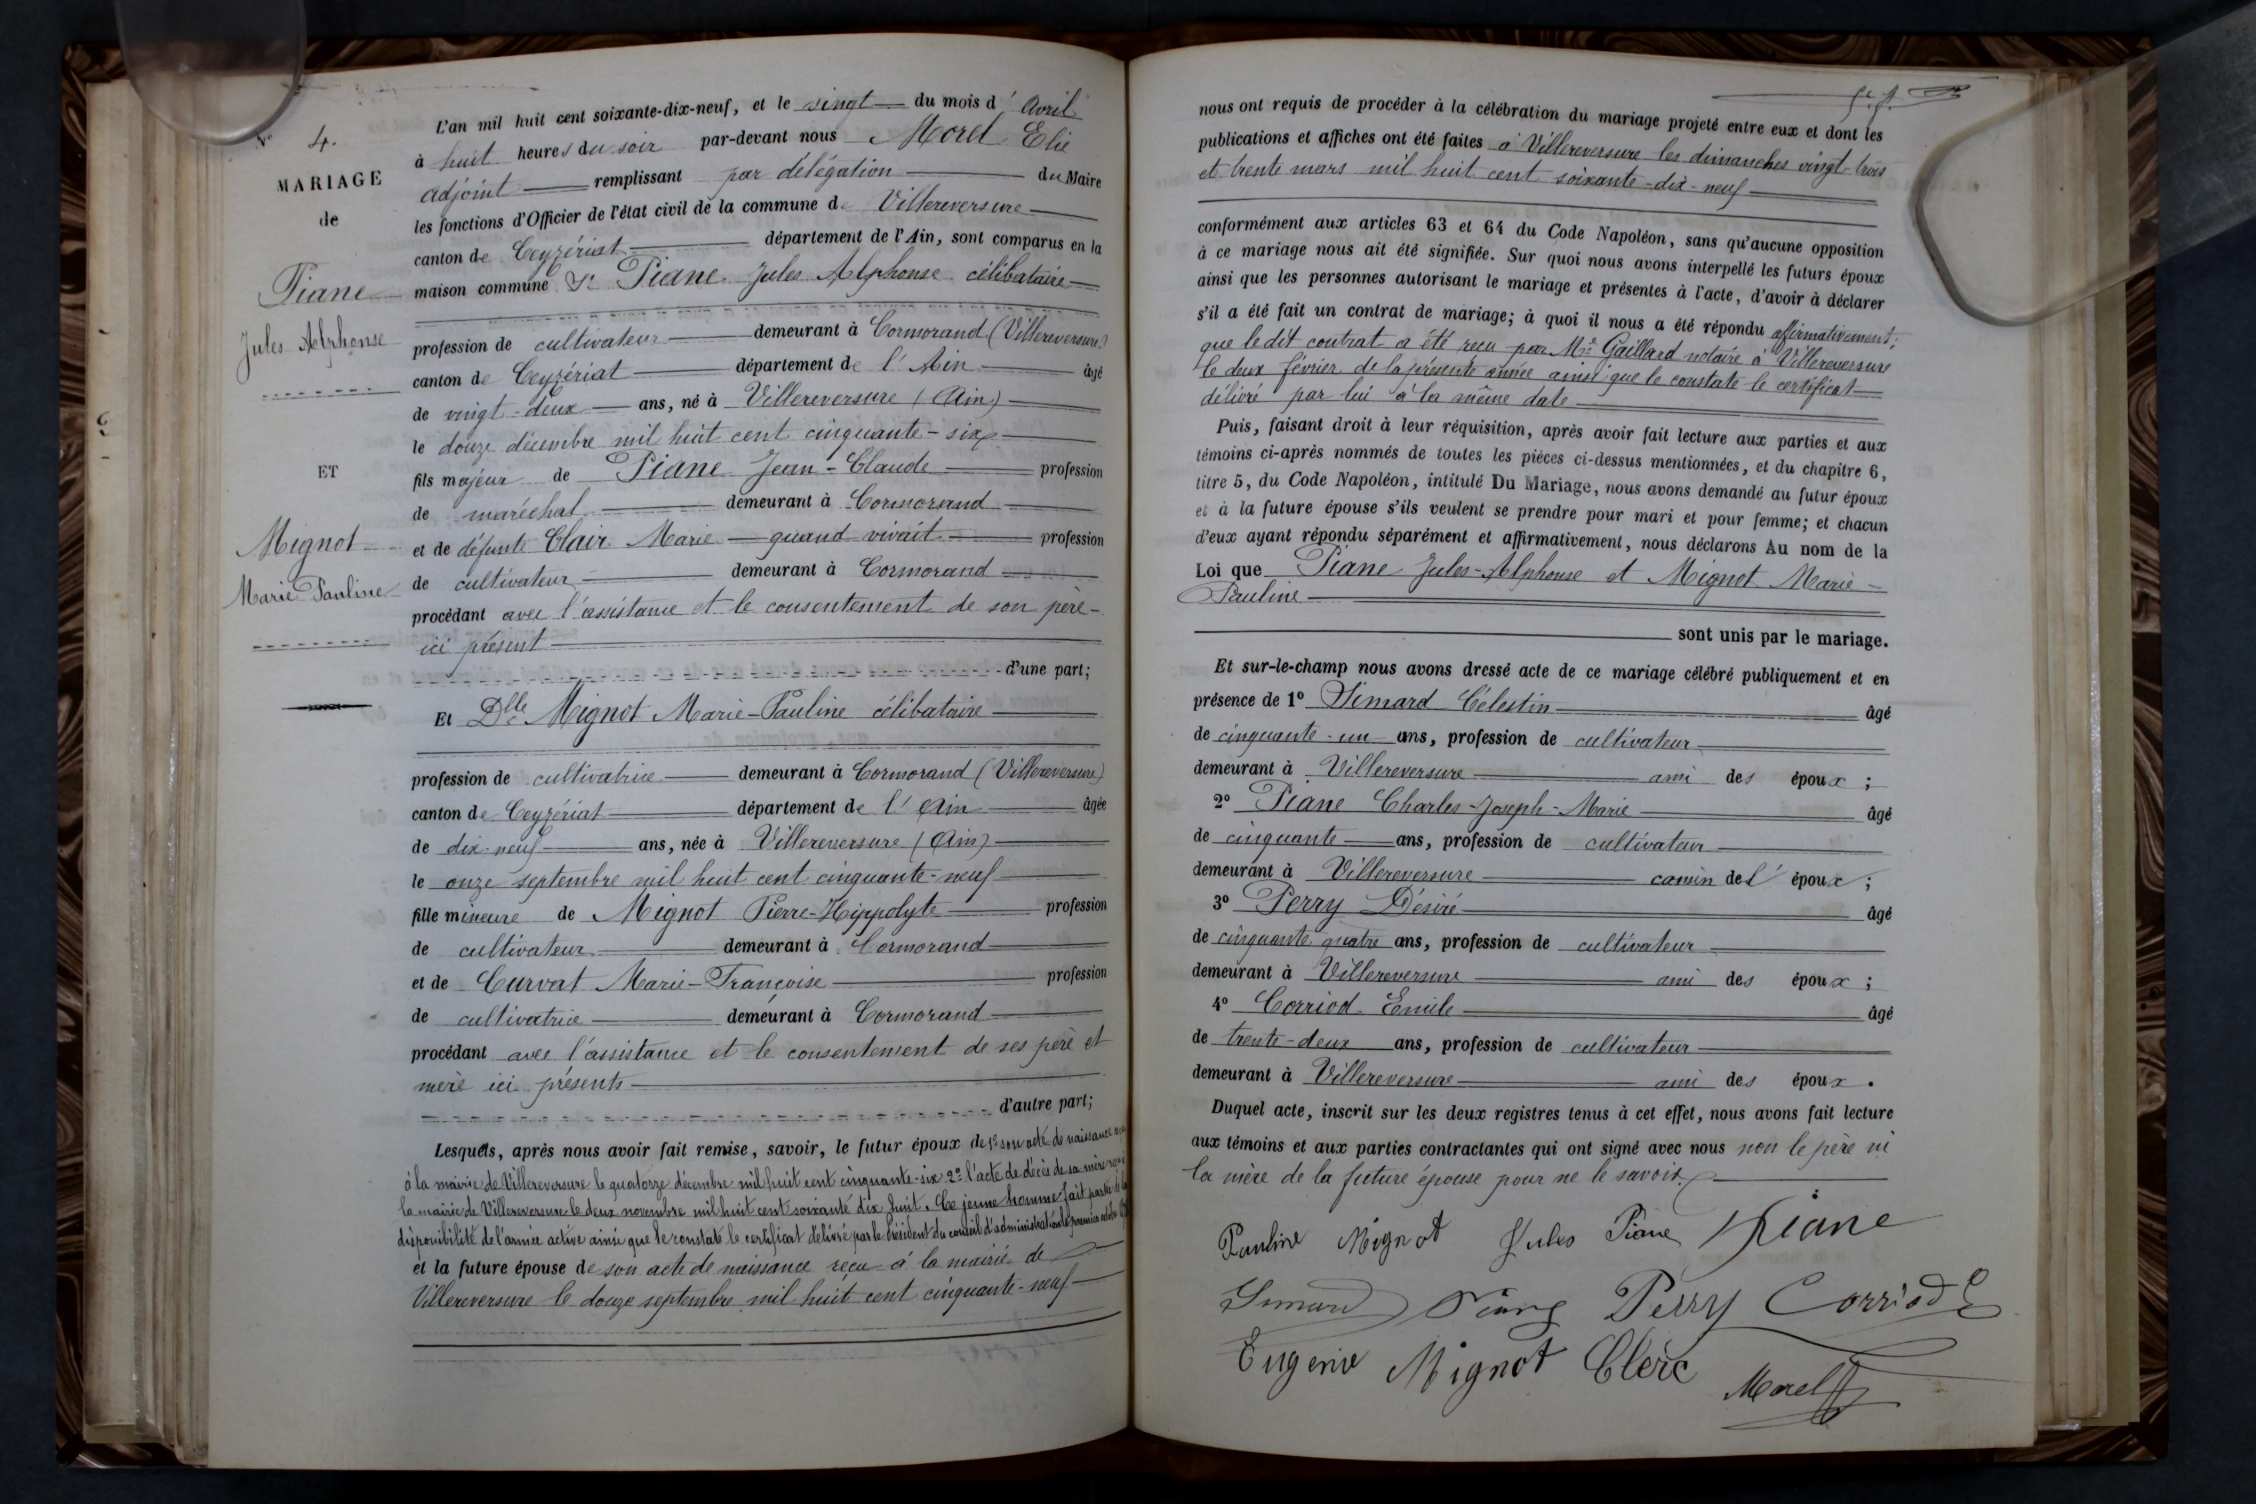 N° 4.
MARIAGE
de
Piane
Jules Alphonse
ET
Mignot
Marie Pauline
L'an mil huit cent soixante-dix-neuf, et le vingt du mois d'Avril
à huit heures du soir par-devant nous Morel Elie
adjoint remplissant par délégation du Maire
les fonctions d'Officier de l'état civil de la commune de Villereversure
canton de Ceyzériat département de l'Ain, sont comparus en la
maison commune Sr Piane Jules Alphonse célibataire
profession de cultivateur demeurant à Cormorand (Villereversure)
canton de Ceyzériat département de l'Ain âgé
de vingt-deux ans, né à Villereversure (Ain)
le douze décembre mil huit cent cinquante-six
fils majeur de Piane Jean-Claude profession
de maréchal demeurant à Cormorand
et de défunte Clair Marie quand vivait profession
de cultivateur demeurant à Cormorand
procédant avec l'assistance et le consentement de son père
ici présent
d'une part;
Et Dlle Mignot Marie-Pauline célibataire
profession de cultivatrice demeurant à Cormorand (Villereversure)
canton de Ceyzériat département de l'Ain âgée
de dix-neuf ans, née à Villereversure (Ain)
le onze septembre mil huit cent cinquante-neuf
fille mineure de Mignot Pierre-Hippolyte profession
de cultivateur demeurant à Cormorand
et de Curvat Marie-Françoise profession
de cultivatrice demeurant à Cormorand
procédant avec l'assistance et le consentement de ses père et
mère ici présents
d'autre part;
Lesquels, après nous avoir fait remise, savoir, le futur époux de 1° son acte de naissance
à la mairie de Villereversure le quatorze décembre mil huit cent cinquante-six 2° l'acte de décès de sa mère
la mairie de Villereversure le deux novembre mil huit cent soixante dix huit. Ce jeune homme fait partie de la
disponibilité de l'armée active ainsi que le constate le certificat délivré par le Président du conseil d'administration le premier octobre
et la future épouse de son acte de naissance reçu à la mairie de
Villereversure le douze septembre mil huit cent cinquante-neuf
nous ont requis de procéder à la célébration du mariage projeté entre eux et dont les
publications et affiches ont été faites à Villereversure les dimanches vingt-trois
et trente mars mil huit cent soixante-dix-neuf
conformément aux articles 63 et 64 du Code Napoléon, sans qu'aucune opposition
à ce mariage nous ait été signifiée. Sur quoi nous avons interpellé les futurs époux
ainsi que les personnes autorisant le mariage et présentes à l'acte, d'avoir à déclarer
s'il a été fait un contrat de mariage; à quoi il nous a été répondu affirmativement;
que le dit contrat a été reçu par Me Gaillard notaire à Villereversure
le deux février de la présente année ainsi que le constate le certificat
délivré par lui à la même date
Puis, faisant droit à leur réquisition, après avoir fait lecture aux parties et aux
témoins ci-après nommés de toutes les pièces ci-dessus mentionnées, et du chapitre 6,
titre 5, du Code Napoléon, intitulé Du Mariage, nous avons demandé au futur époux
et à la future épouse s'ils veulent se prendre pour mari et pour femme; et chacun
d'eux ayant répondu séparément et affirmativement, nous déclarons Au nom de la
Loi que Piane Jules-Alphonse et Mignot Marie-
Pauline
sont unis par le mariage.
Et sur-le-champ nous avons dressé acte de ce mariage célébré publiquement et en
présence de 1° Simard Célestin âgé
de cinquante-un ans, profession de cultivateur
demeurant à Villereversure ami des époux;
2° Piane Charles-Joseph-Marie âgé
de cinquante ans, profession de cultivateur
demeurant à Villereversure cousin de l'époux;
3° Perry Désiré âgé
de cinquante quatre ans, profession de cultivateur
demeurant à Villereversure ami des époux;
4° Corriod Emile âgé
de trente-deux ans, profession de cultivateur
demeurant à Villereversure ami des époux.
Duquel acte, inscrit sur les deux registres tenus à cet effet, nous avons fait lecture
aux témoins et aux parties contractantes qui ont signé avec nous non le père ni
la mère de la future épouse pour ne le savoir.
Pauline Mignot Jules Piane Piane
Simard Piane Perry Corriod E
Eugenie Mignot Clerc Morel